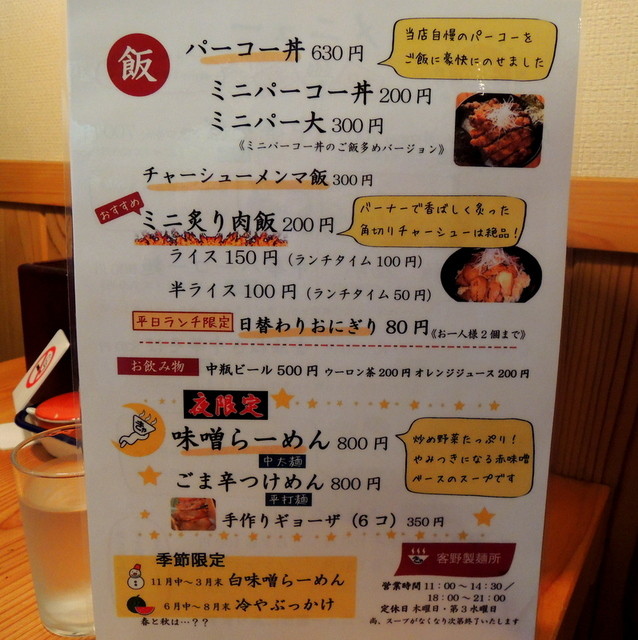 飯
パーコー丼 630円
当店自慢のパーコーを
ご飯に豪快にのせました
ミニパーコー丼 200円
ミニパー大 300円
《ミニパーコー丼のご飯多めバージョン》
チャーシューメンマ飯 300円
おすすめ
ミニ炙り肉飯 200円
バーナーで香ばしく炙った
角切りチャーシューは絶品!
ライス 150円 (ランチタイム 100円)
半ライス 100円 (ランチタイム 50円)
平日ランチ限定 日替わりおにぎり 80円 《お一人様2個まで》
お飲み物 中瓶ビール 500円 ウーロン茶 200円 オレンジジュース 200円
夜限定
味噌らーめん 800円
中太麺
炒め野菜たっぷり!
やみつきになる赤味噌
ベースのスープです
ごま辛つけめん 800円
平打麺
手作りギョーザ (6コ) 350円
季節限定
11月中〜3月末 白味噌らーめん
6月中〜8月末 冷やぶっかけ
春と秋は…??
客野製麺所
営業時間 11:00〜14:30/
18:00〜21:00
定休日 木曜日・第3水曜日
尚、スープがなくなり次第終了いたします